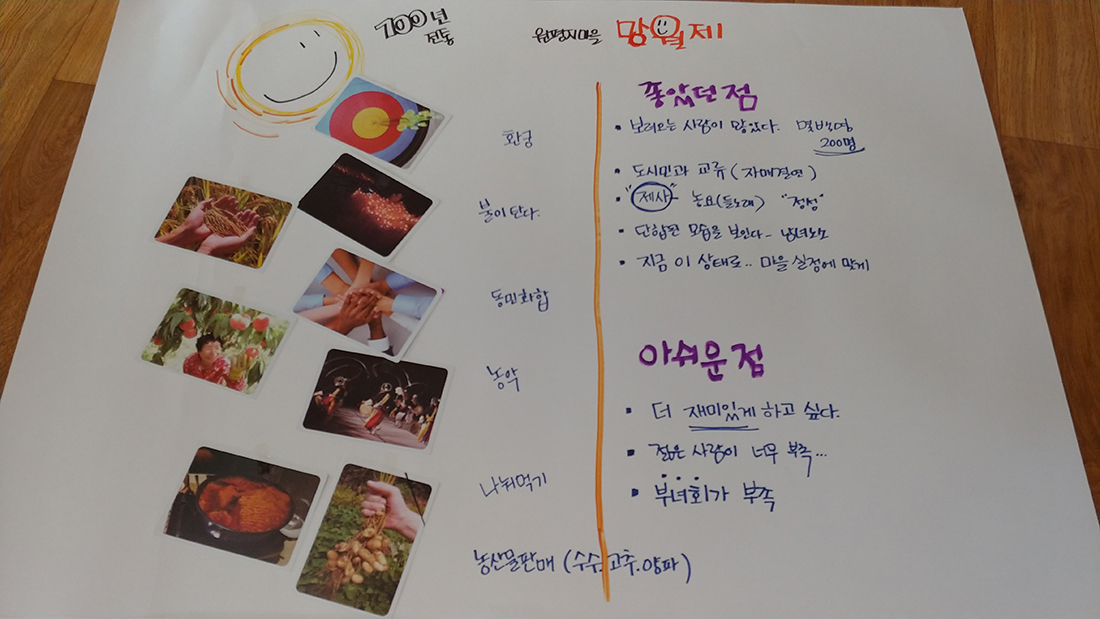 700년
전통
원평지마을 망월제!
활궁
불이 탄다.
동민화합
농악
나눠먹기
농산물판매 (수수.고추.양파)
좋았던 점
• 보러오는 사람이 많았다. 몇백명
200명
• 도시민과 교류 (자매결연)
• "제사" - 농요(들노래) "정성"
• 단합된 모습을 보인다 - 남녀노소
• 지금 이 상태로.. 마을 실정에 맞게
아쉬운 점
• 더 재미있게 하고 싶다.
• 젊은 사람이 너무 부족...
• 부녀회가 부족